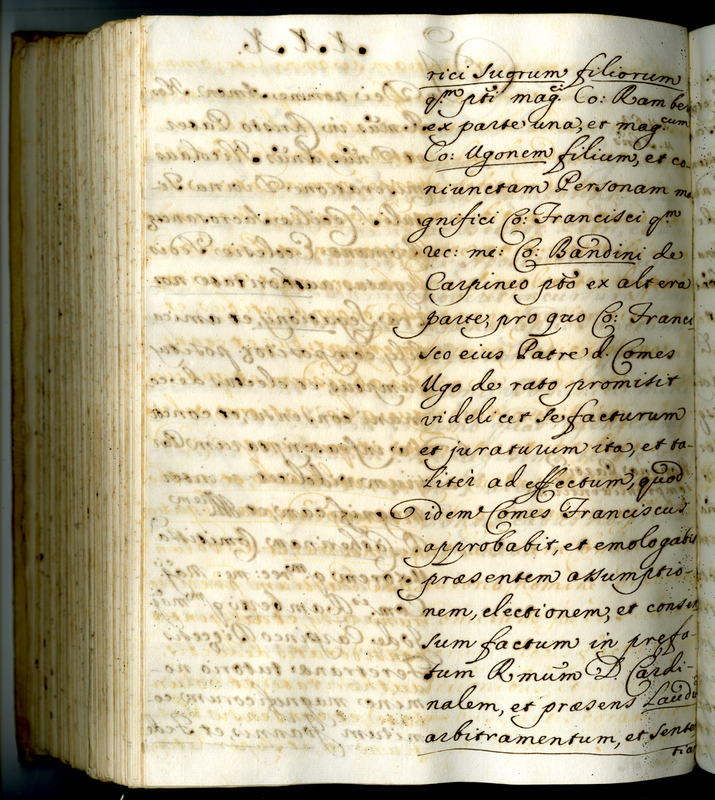 rici sugrum filiorum
q.m pti mag.ci Co: Rambe
ex parte una, et mag.cum
Co: Ugonem filium, et co-
niunctam Personam ma
gnifici Co: Francisci q.m
rec: me: Co: Bandini de
Carpineo pto ex altera
parte, pro quo Co: Franci
sco eius Patre d. Comes
Ugo de rato promisit
videlicet se facturum
et juraturum ita, et ta-
liter ad effectum, quod
idem Comes Franciscus
approbabit, et emologabit
præsentem assumptio-
nem, electionem, et consen
sum factum in prefa-
tum Rmum D. Cardi-
nalem, et præsens Laudũ
arbitramentum, et senten
tiam